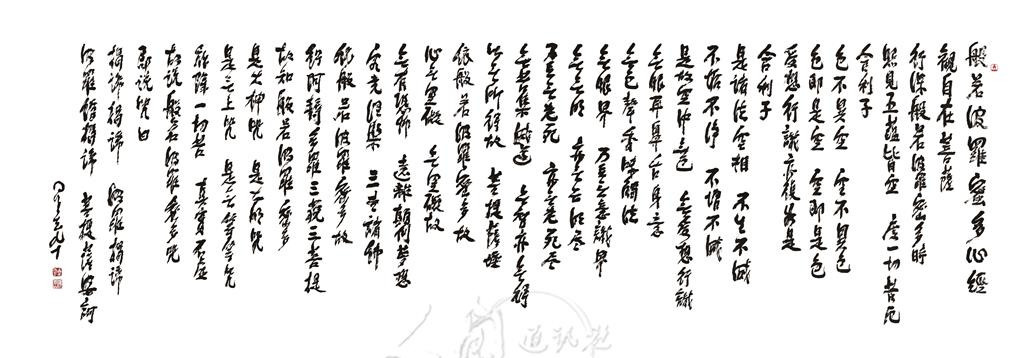 般若波羅蜜多心經
觀自在菩薩
行深般若波羅蜜多時
照見五蘊皆空 度一切苦厄
舍利子
色不異空 空不異色
色即是空 空即是色
受想行識 亦復如是
舍利子
是諸法空相 不生不滅
不垢不淨 不增不減
是故空中無色 無受想行識
無眼耳鼻舌身意
無色聲香味觸法
無眼界 乃至無意識界
無無明 亦無無明盡
乃至無老死 亦無老死盡
無苦集滅道 無智亦無得
以無所得故 菩提薩埵
依般若波羅蜜多故
心無罣礙 無罣礙故
無有恐怖 遠離顛倒夢想
究竟涅槃 三世諸佛
依般若波羅蜜多故
得阿耨多羅三藐三菩提
故知般若波羅蜜多
是大神咒 是大明咒
是無上咒 是無等等咒
能除一切苦 真實不虛
故說般若波羅蜜多咒
即說咒曰
揭諦揭諦 波羅揭諦
波羅僧揭諦 菩提薩婆訶